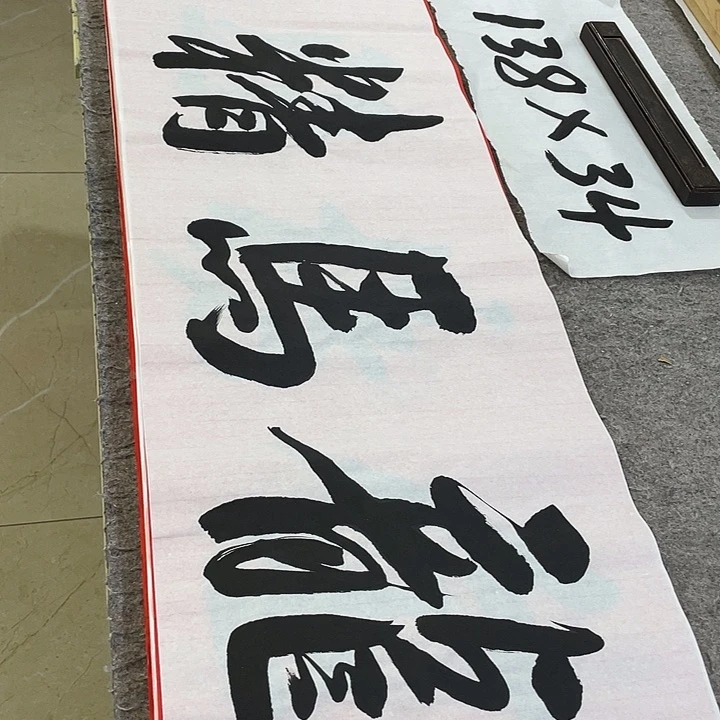 龍馬精
138×34